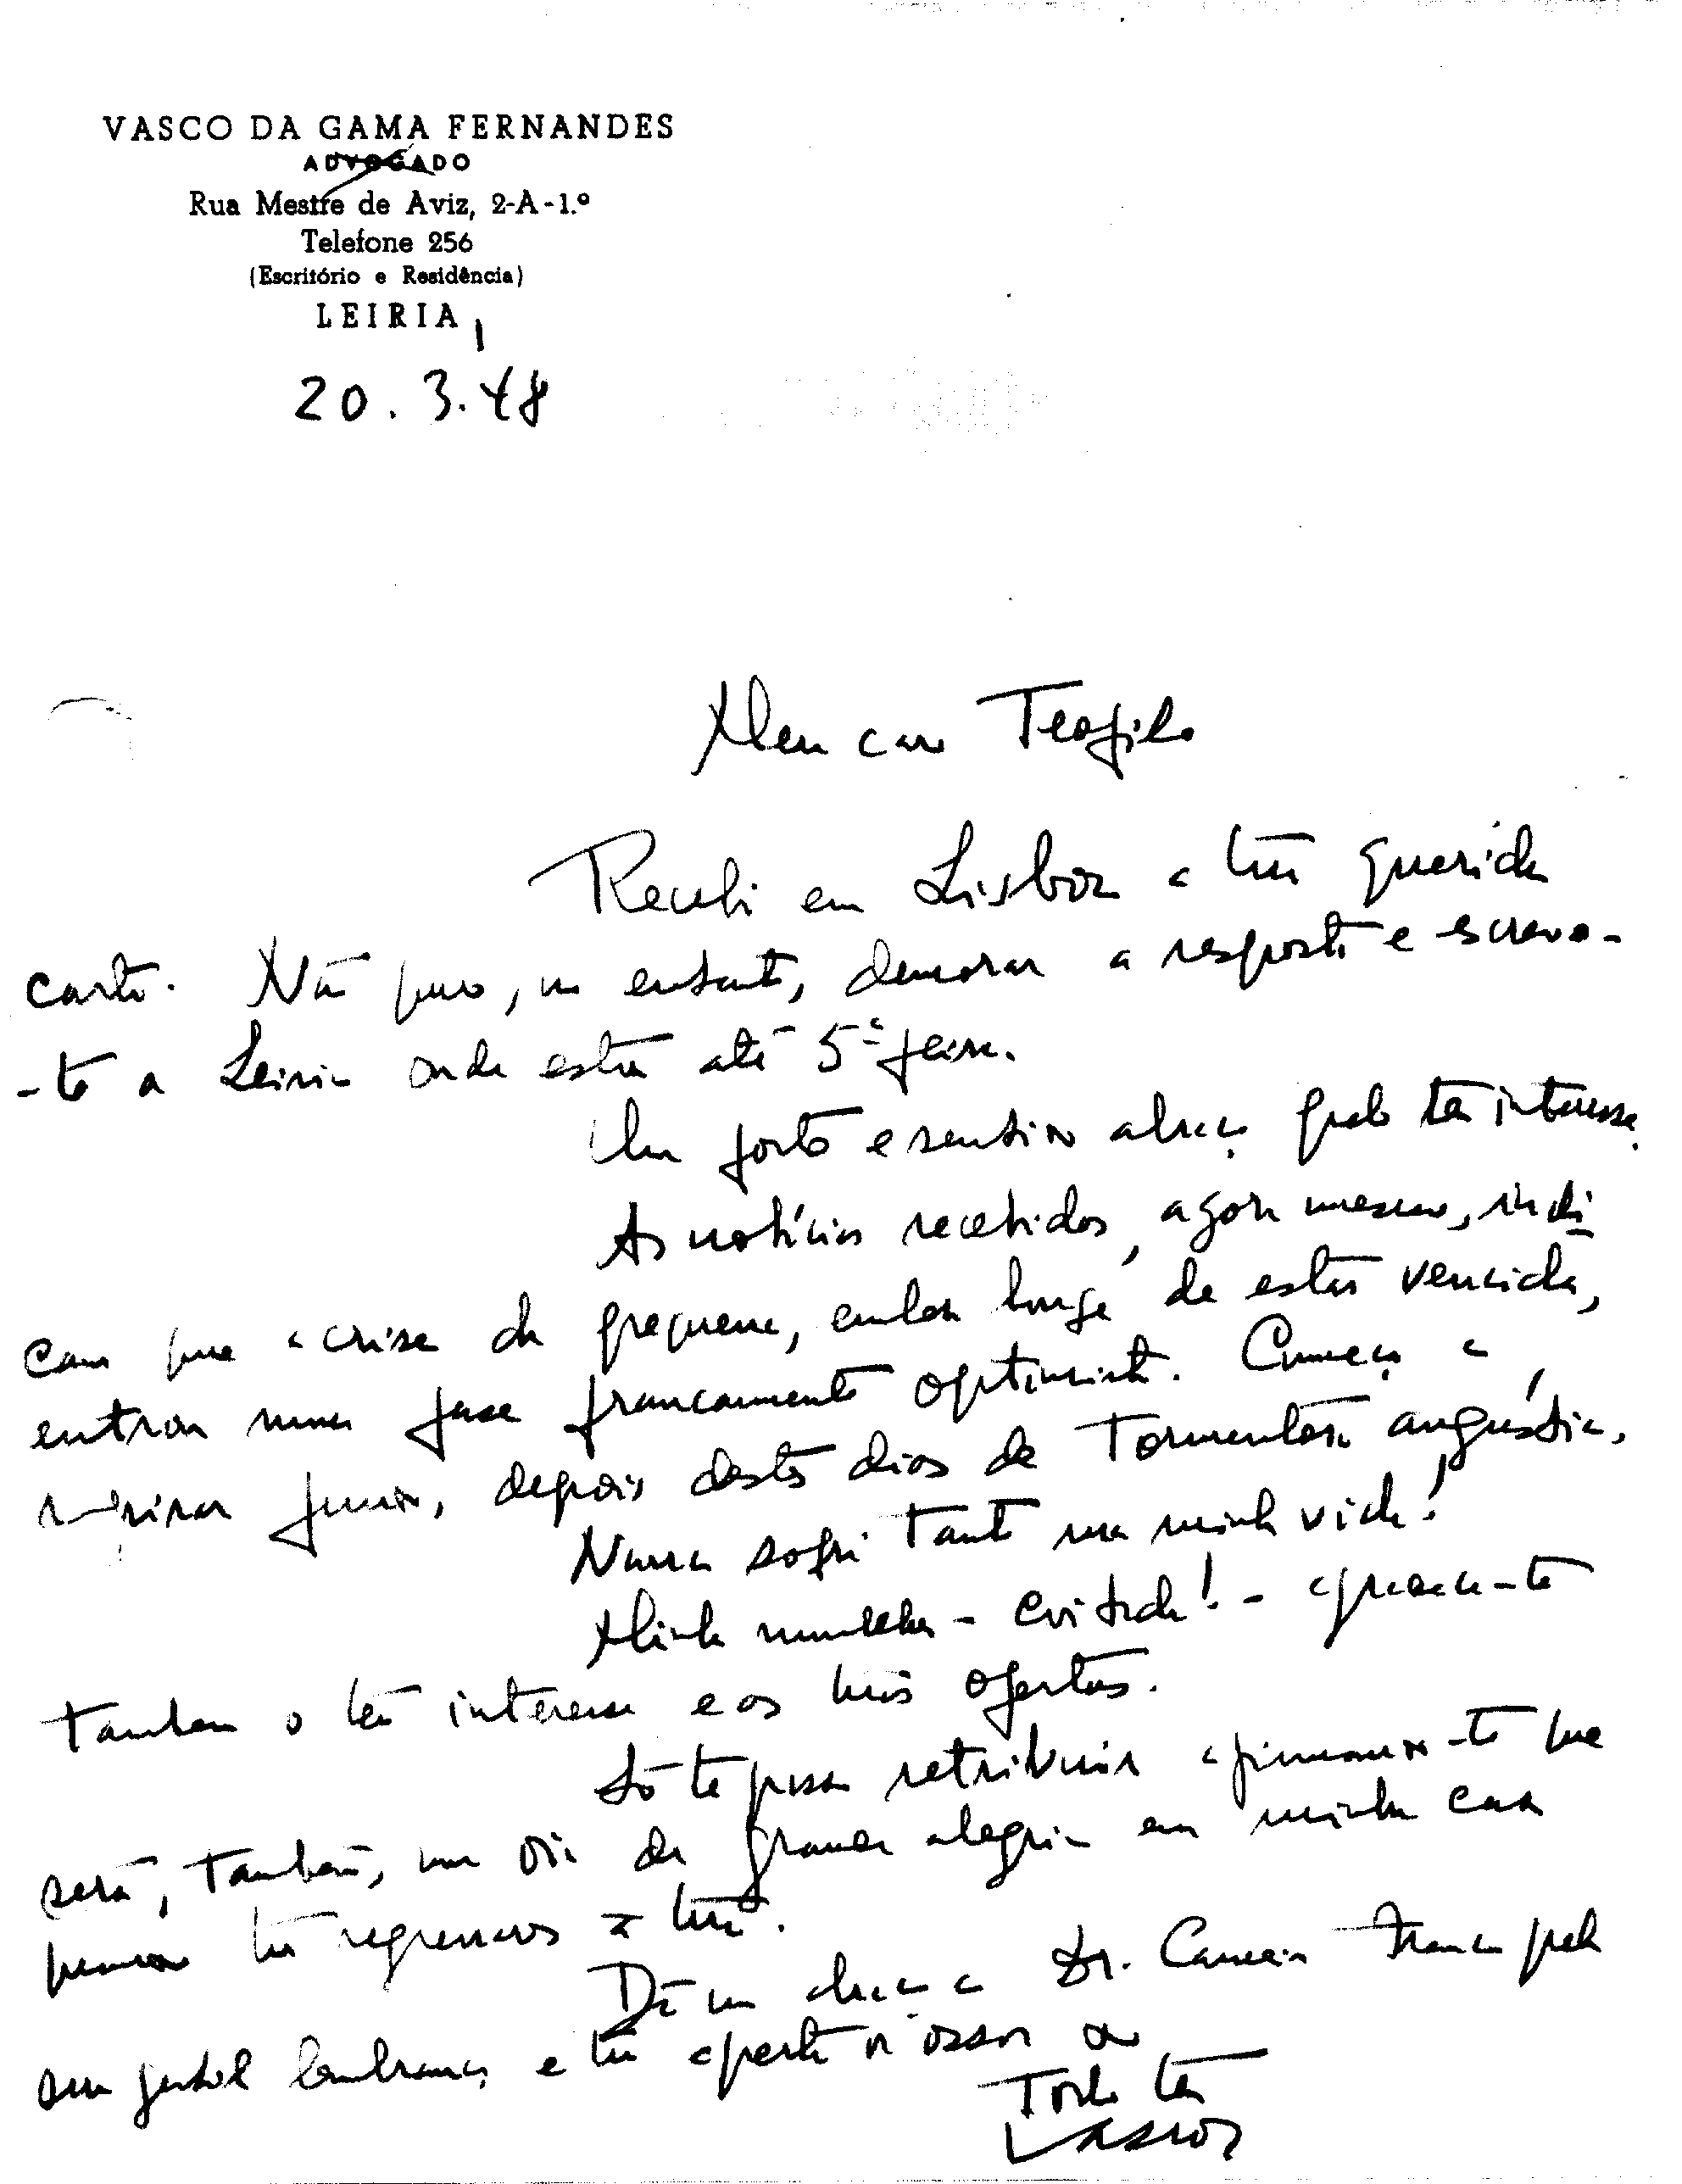 VASCO DA GAMA FERNANDES
ADVOGADO
Rua Mestre de Aviz, 2-A-1.º
Telefone 256
(Escritório e Residência)
LEIRIA
20.3.48
Meu caro Teofilo
Recebi em Lisboa a tua querida
carta. Não quero, no entanto, demorar a resposta e escrevo-
-te a Leiria onde estou até 5ª feira.
Um forte e sentido abraço pelo teu interesse.
As notícias recebidas, agora mesmo, indi
cam que a crise da pequena, embora longe de estar vencida,
entrou numa fase francamente optimista. Começo a
respirar fundo, depois destes dias de tormentosa angústia.
Nunca sofri tanto na minha vida!
Minha mulher - coitada! - agradece-te
tambem o teu interesse e as tuas ofertas.
Só te posso retribuir afirmando-te que
será, também, um dia de grande alegria em minha casa
quando tu regressares à tua.
Dá um abraço a Dr. Carneiro Franco pela
sua gentil lembrança e tu aperta os ossos ao
Todo teu
Vasco